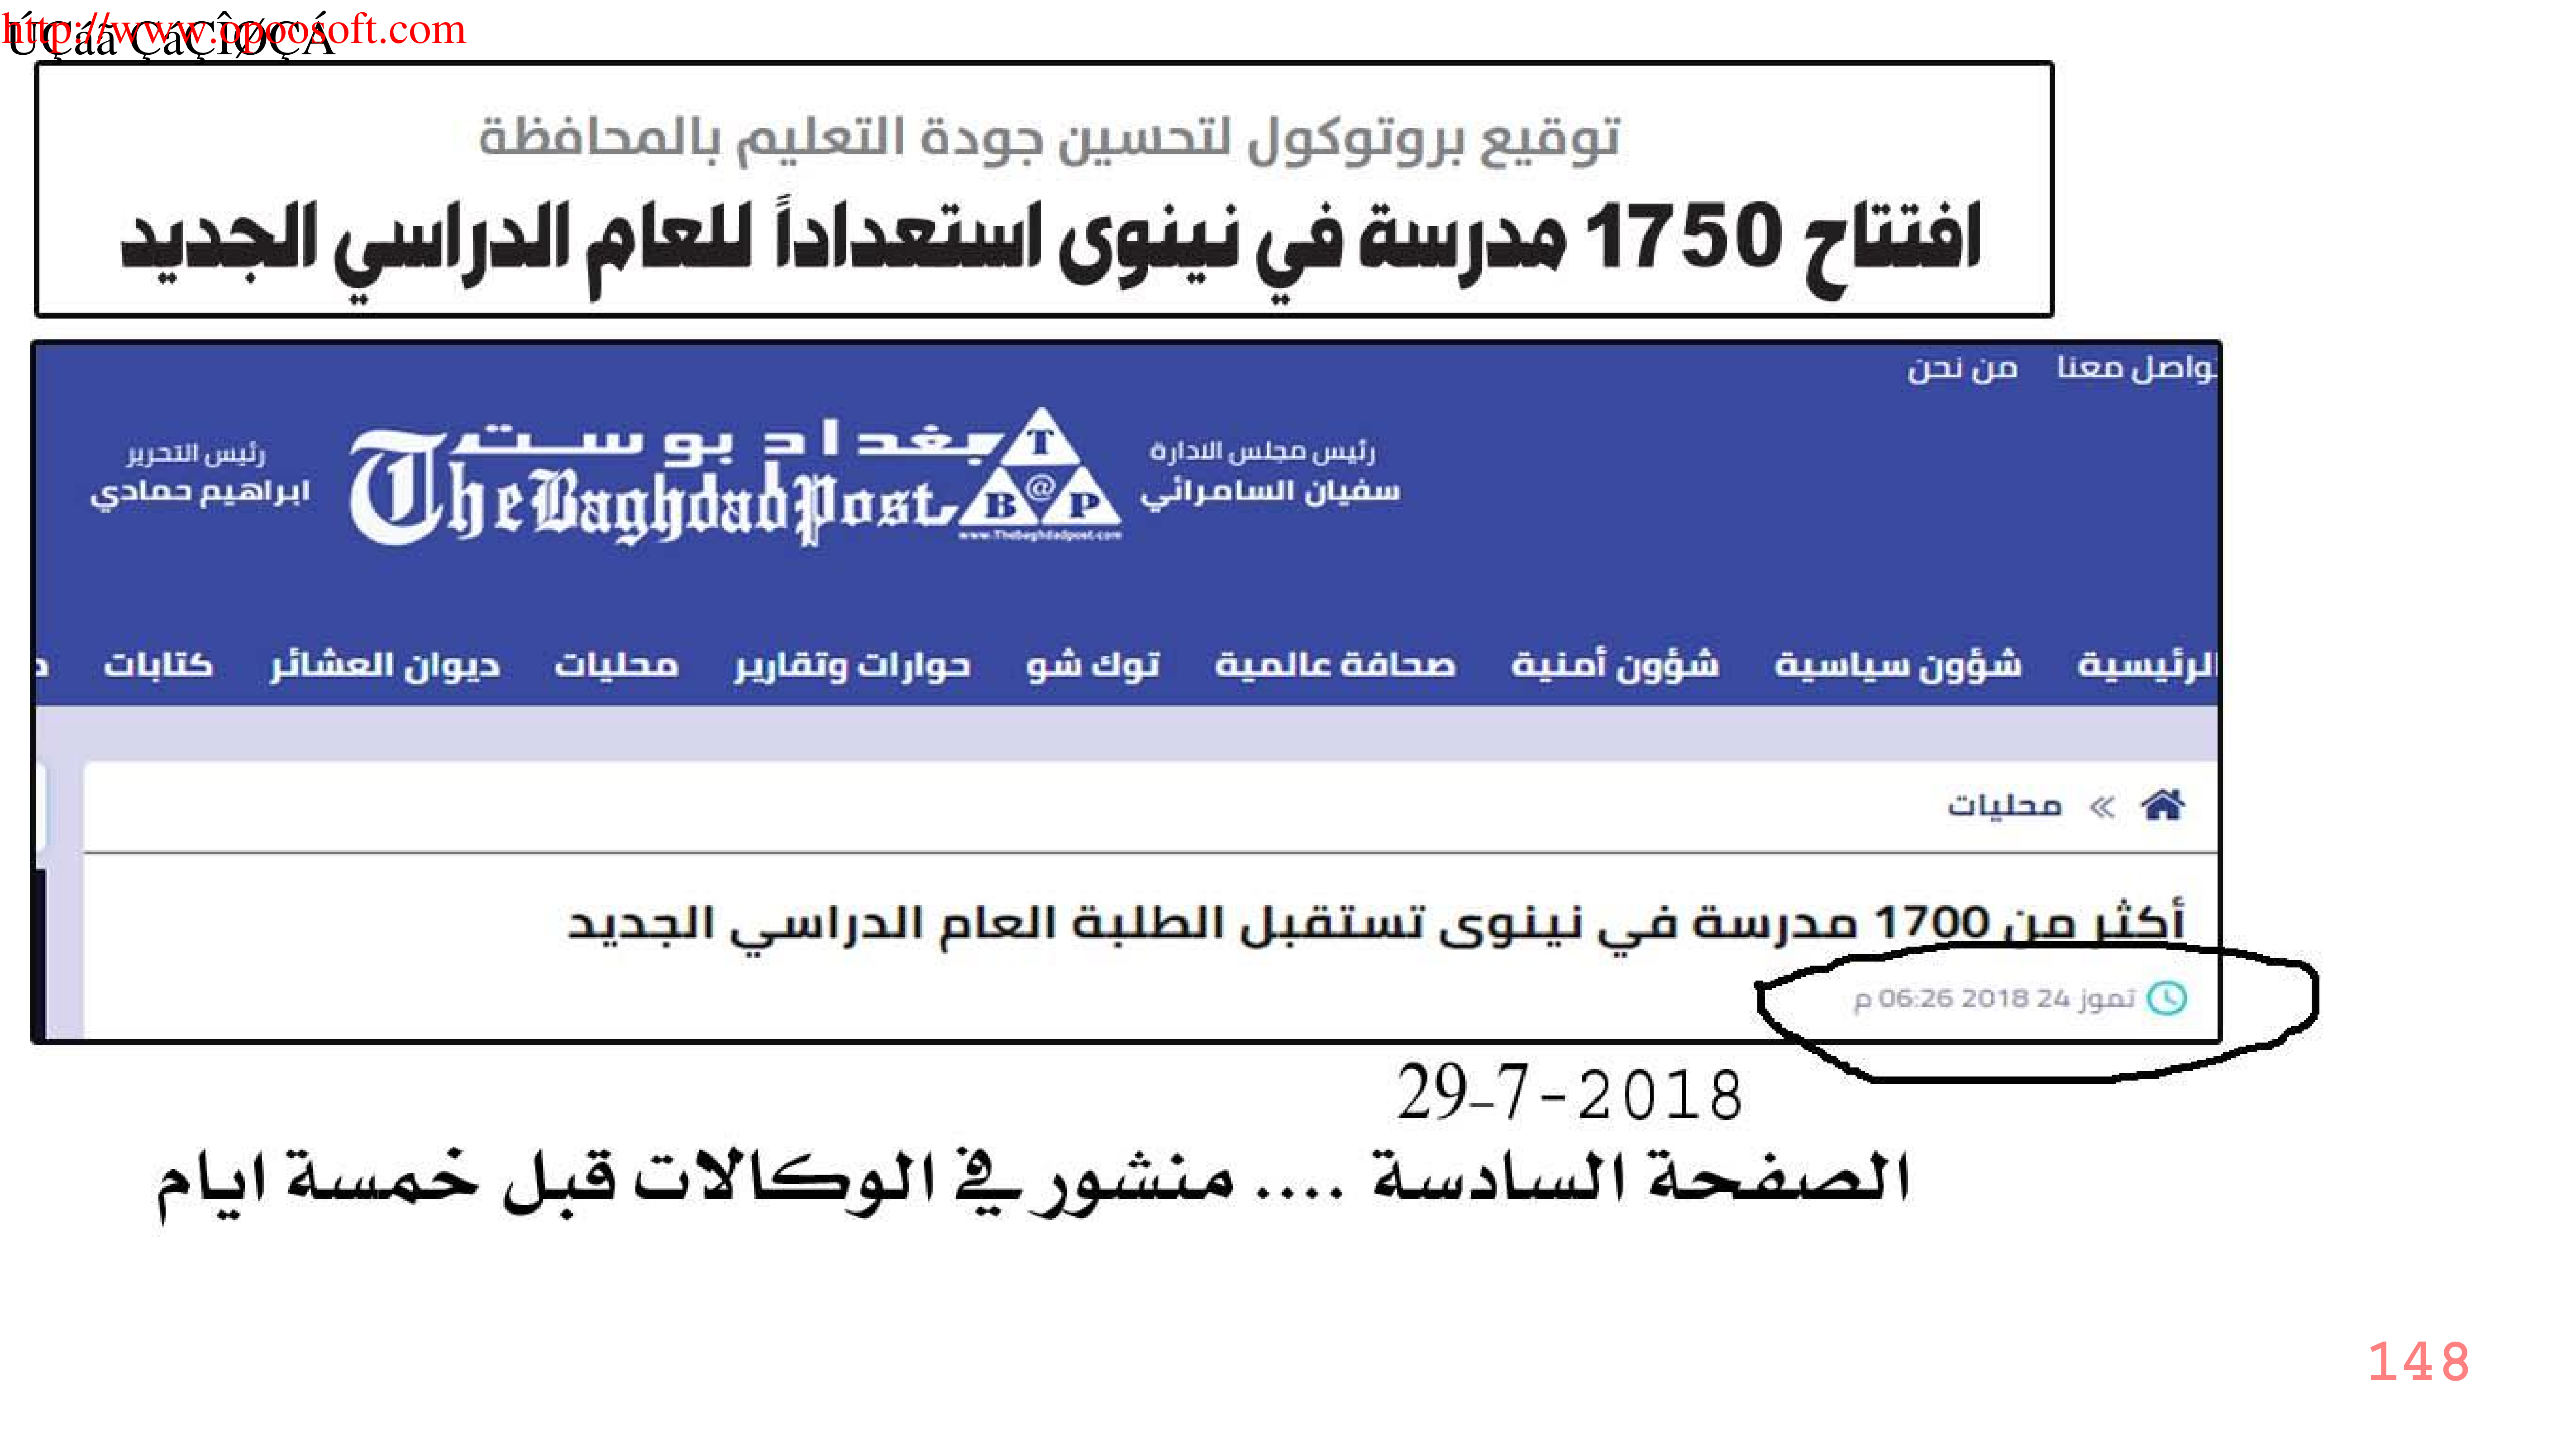 http://www.opoosoft.com
ÚÇáã ÇáÇÎØÇÁ
توقيع بروتوكول لتحسين جودة التعليم بالمحافظة
افتتاح 1750 مدرسة في نينوى استعداداً للعام الدراسي الجديد
تواصل معنا من نحن
رئيس مجلس الادارة
سفيان السامرائي
بغداد بوست
The Baghdad Post
T B @ P
www.Thebaghdadpost.com
رئيس التحرير
ابراهيم حمادي
الرئيسية شؤون سياسية شؤون أمنية صحافة عالمية توك شو حوارات وتقارير محليات ديوان العشائر كتابات
محليات
أكثر من 1700 مدرسة في نينوى تستقبل الطلبة العام الدراسي الجديد
تموز 24 2018 06:26 م
29-7-2018
الصفحة السادسة .... منشور في الوكالات قبل خمسة ايام
148